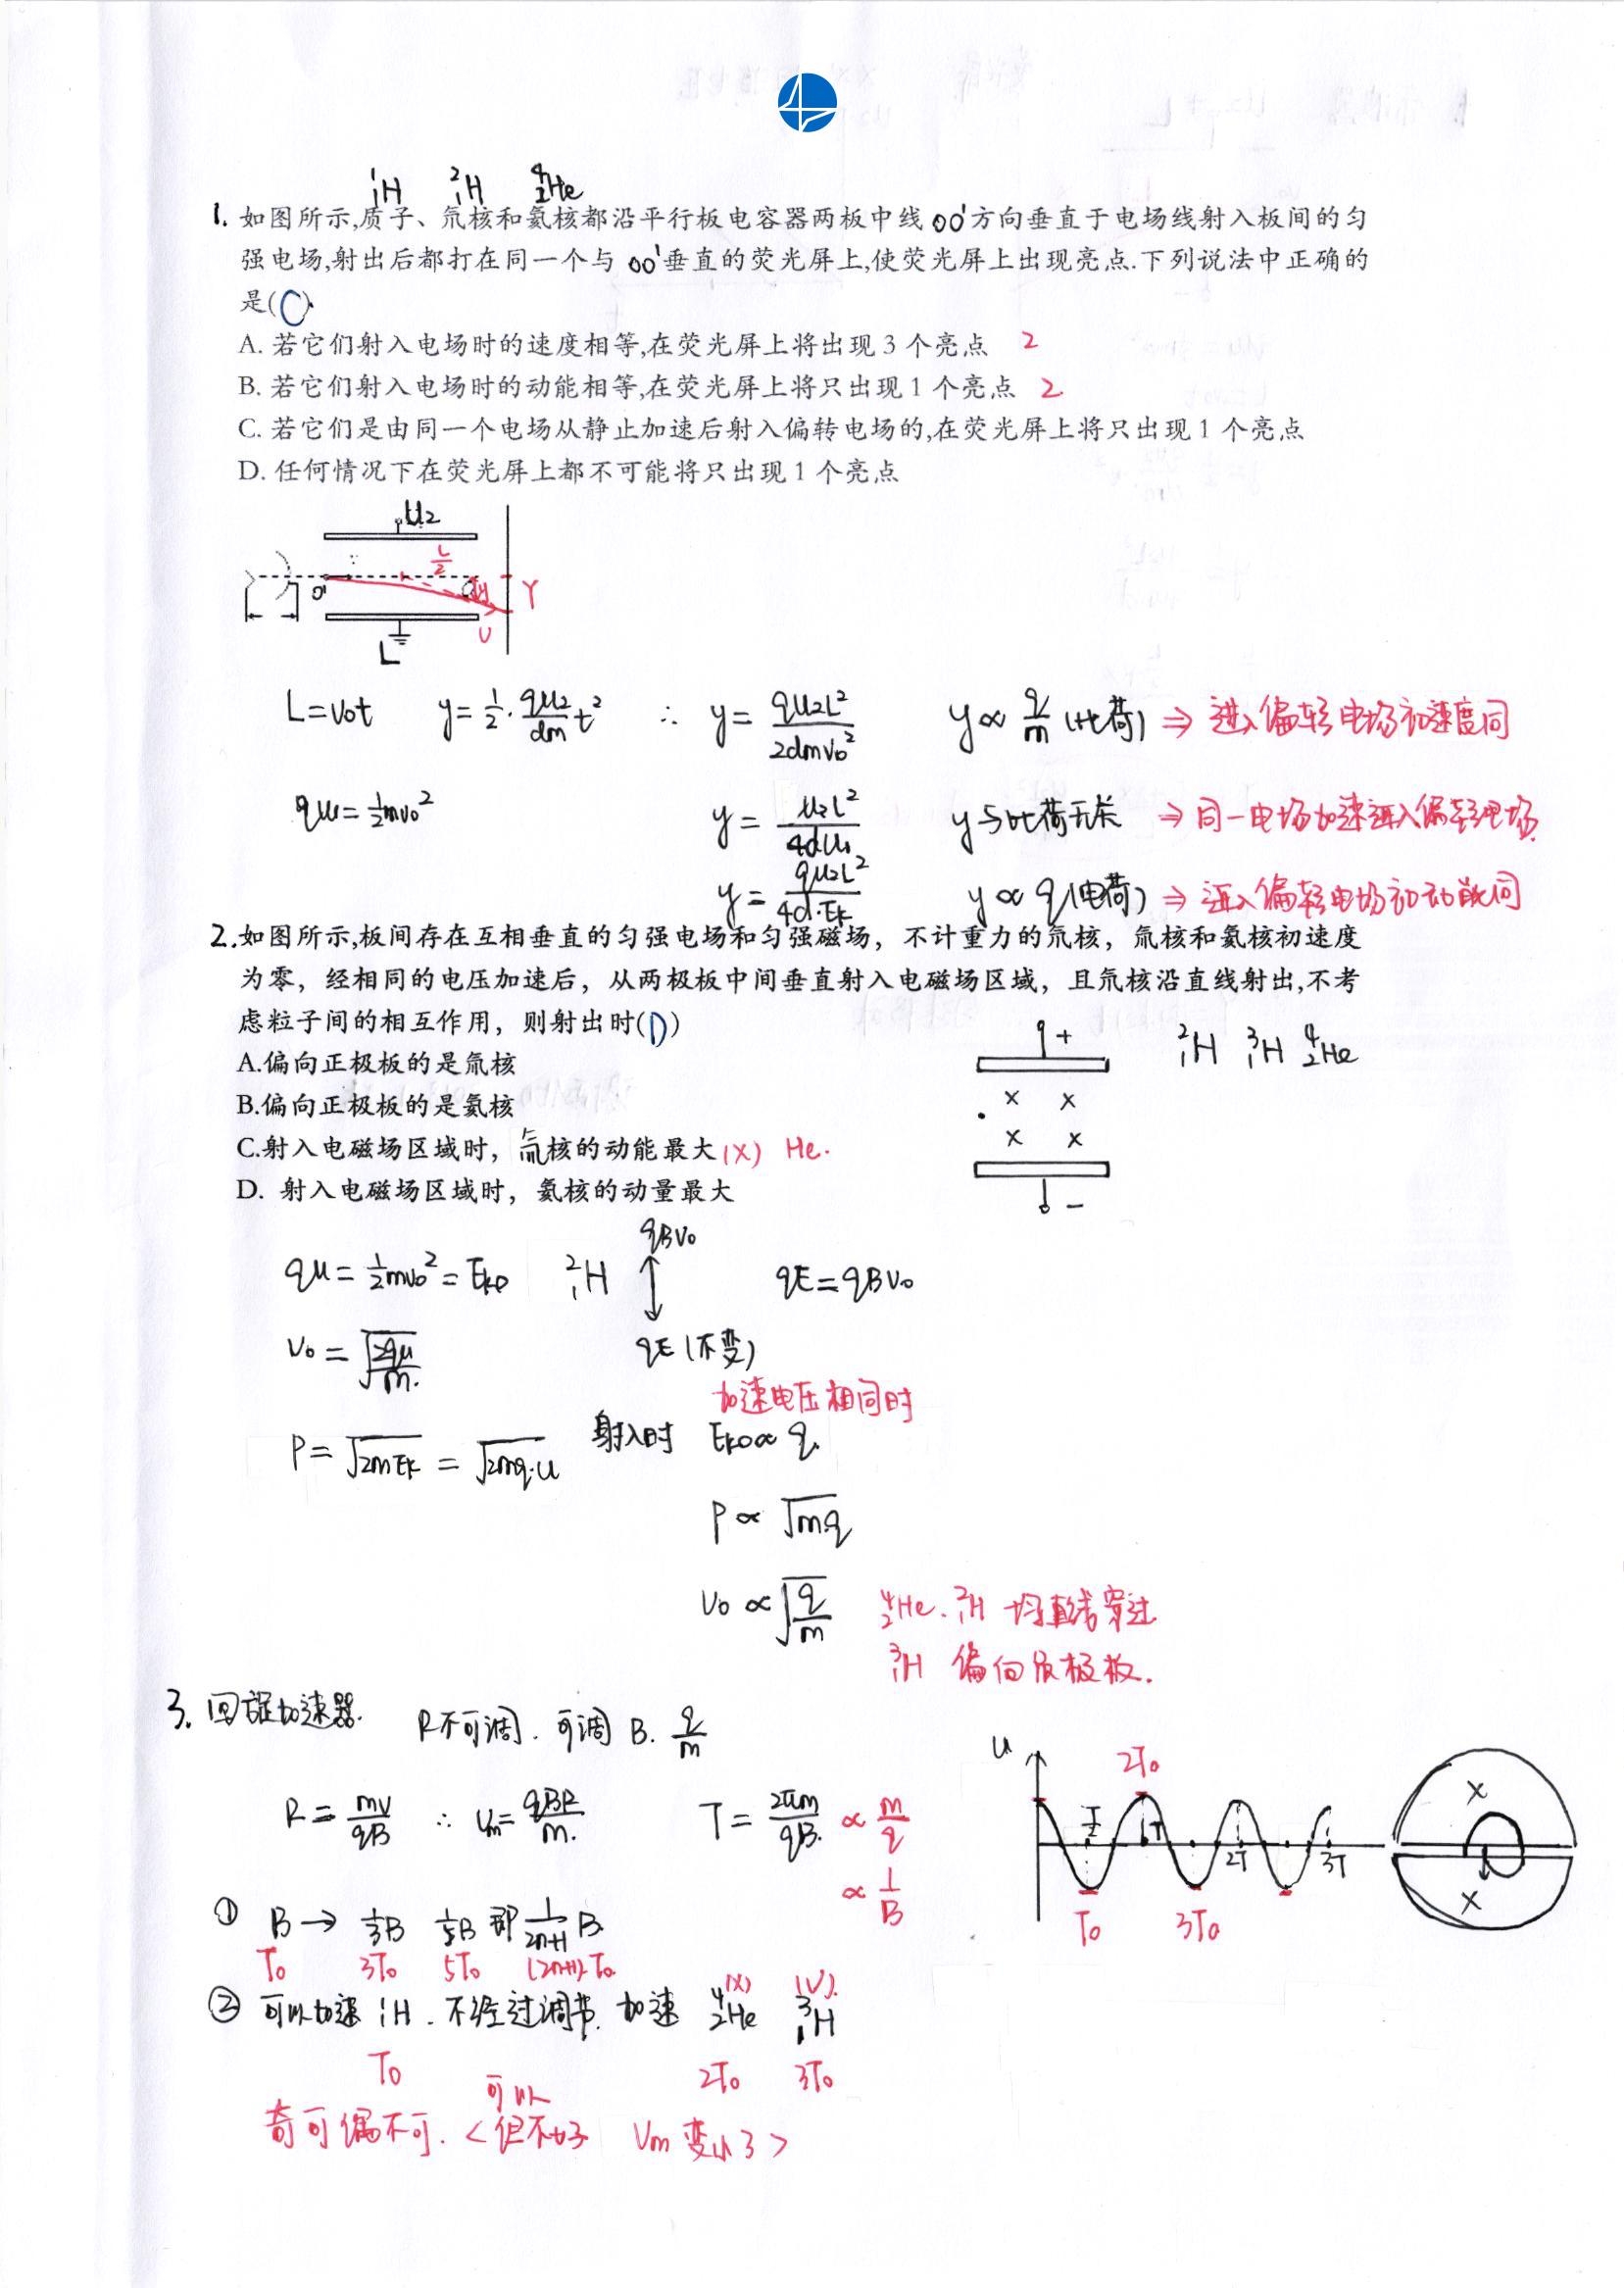 ¹₁H ²₁H ⁴₂He
1. 如图所示,质子、氘核和氦核都沿平行板电容器两板中线 OO' 方向垂直于电场线射入板间的匀
强电场,射出后都打在同一个与 OO' 垂直的荧光屏上,使荧光屏上出现亮点.下列说法中正确的
是(C)
A. 若它们射入电场时的速度相等,在荧光屏上将出现 3 个亮点 2
B. 若它们射入电场时的动能相等,在荧光屏上将只出现 1 个亮点 2
C. 若它们是由同一个电场从静止加速后射入偏转电场的,在荧光屏上将只出现 1 个亮点
D. 任何情况下在荧光屏上都不可能将只出现 1 个亮点
U₂
L/2
O' y Y
U
L
L=v₀t y=½·qU₂/dm t² ∴ y=qU₂L²/2dmv₀² y∝q/m (比荷) ⇒ 进入偏转电场初速度同
qU₁=½mv₀² y=U₂L²/4dU₁ y与比荷无关 ⇒ 同一电场加速进入偏转电场.
y=qU₂L²/4d·Ek y∝q(电荷) ⇒ 进入偏转电场初动能同
2.如图所示,板间存在互相垂直的匀强电场和匀强磁场，不计重力的氘核，氚核和氦核初速度
为零，经相同的电压加速后，从两极板中间垂直射入电磁场区域，且氘核沿直线射出,不考
虑粒子间的相互作用，则射出时(D)
+ ²₁H ³₁H ⁴₂He
A.偏向正极板的是氚核
B.偏向正极板的是氦核
× ×
× ×
C.射入电磁场区域时，氚核的动能最大 (×) He.
D. 射入电磁场区域时，氦核的动量最大
−
qBv₀
qU=½mv₀²=Ek₀ ²₁H qE=qBv₀
v₀=√(2qU/m) qE (不变)
加速电压相同时
P=√(2mEk)=√(2mq·U) 射入时 Ek₀∝q.
P∝√(mq)
v₀∝√(q/m) ⁴₂He.²₁H 均直线穿过
³₁H 偏向负极板.
3. 回旋加速器. R不可调.可调 B. q/m
R=mv/qB ∴ vm=qBR/m. T=2πm/qB. ∝ m/q
∝ 1/B
U 2T₀
T/2 T 2T 3T
T₀ 3T₀
× ×
① B→ ⅓B ⅕B 即 1/(2n+1) B.
T₀ 3T₀ 5T₀ (2n+1)·T₀
(×) (√).
② 可以加速 ₁H .不经过调节.加速 ⁴₂He ³₁H
T₀ 2T₀ 3T₀
可以
奇可偶不可. <但不好 Vm 变小了>